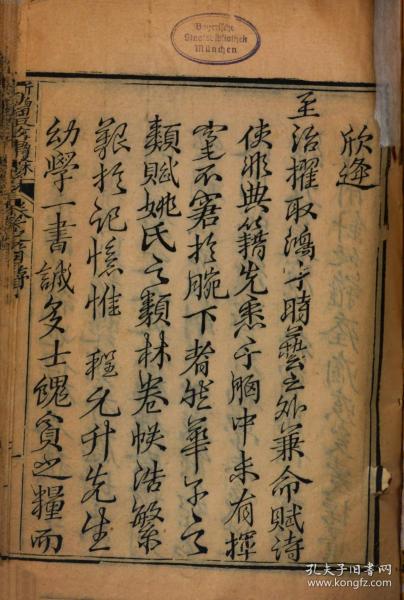 Bayerische
Staatsbibliothek
München
欣逢
至治擢取鴻才時藝之外兼命賦詩
使非典籍先悉于胸中未有揮
毫不窘扵腕下者然華子之
類賦姚氏之類林卷帙浩繁
艱扵记憶惟 程允升先生
幼學一書誠多士餽貧之糧而
孔夫子旧书网
www.kongfz.com